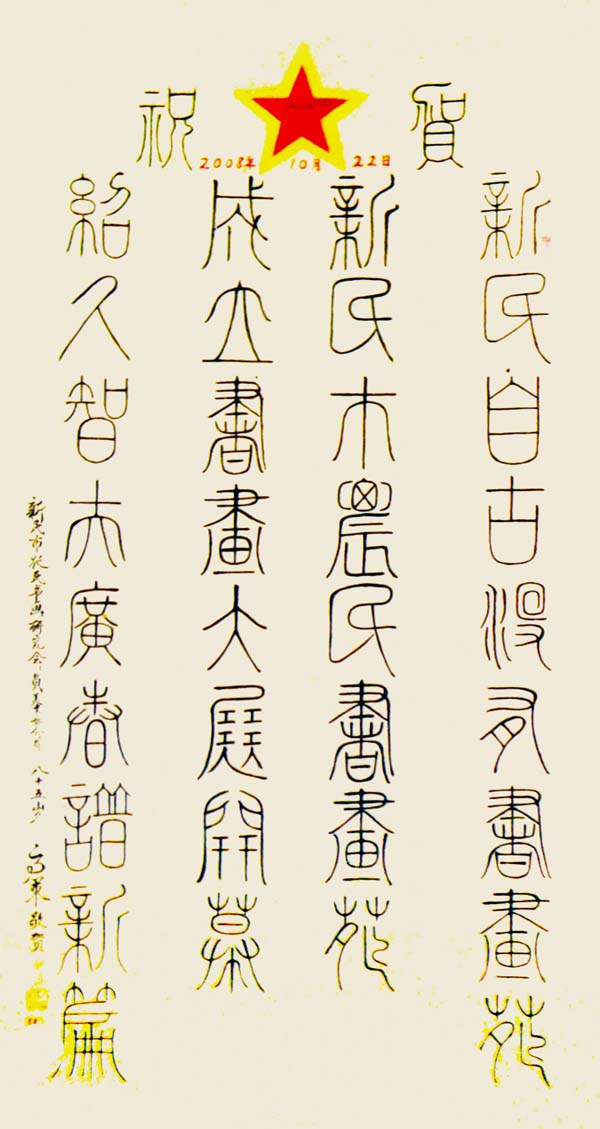 祝賀
2008年 10月 22日
新民自古没有書畫苑
新民市農民書畫苑
成立書畫大展開幕
紹久智廣春譜新篇
新民市农民书画研究会员 八十五岁 敬贺